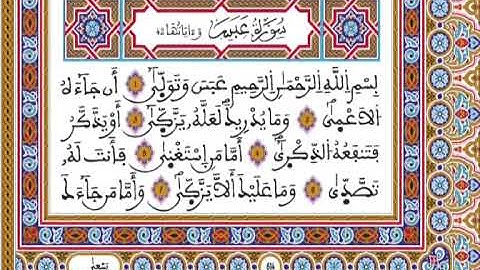 سُورَةُ عَبَسَ
بِسْمِ اللَّهِ الرَّحْمَٰنِ الرَّحِيمِ عَبَسَ وَتَوَلَّىٰٓ ١ أَن جَآءَهُ
اُلَاعْمَىٰ ٢ وَمَا يُدْرِيكَ لَعَلَّهُۥ يَزَّكَّىٰٓ ٣ أَوْ يَذَّكَّرُ
فَتَنفَعُهُ اُلذِّكْرَىٰٓ ٤ أَمَّا مَنِ اِسْتَغْنَىٰ ٥ فَأَنتَ لَهُۥ
تَصَّدَّىٰ ٦ وَمَا عَلَيْكَ أَلَّا يَزَّكَّىٰ ٧ وَأَمَّا مَن جَآءَكَ
يَسْعَىٰ